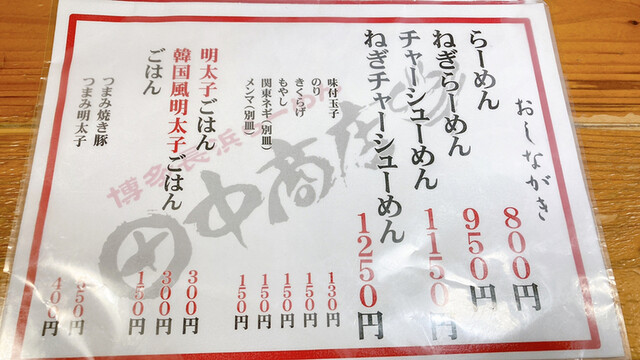 おしながき
らーめん 800円
ねぎらーめん 950円
チャーシューめん 1150円
ねぎチャーシューめん 1250円
味付玉子
のり
きくらげ
もやし
関東ネギ(別皿)
メンマ(別皿)
130円
150円
150円
150円
150円
明太子ごはん 300円
韓国風明太子ごはん 300円
ごはん 150円
つまみ焼き豚 350円
つまみ明太子 400円
博多長浜らーめん
田中商店